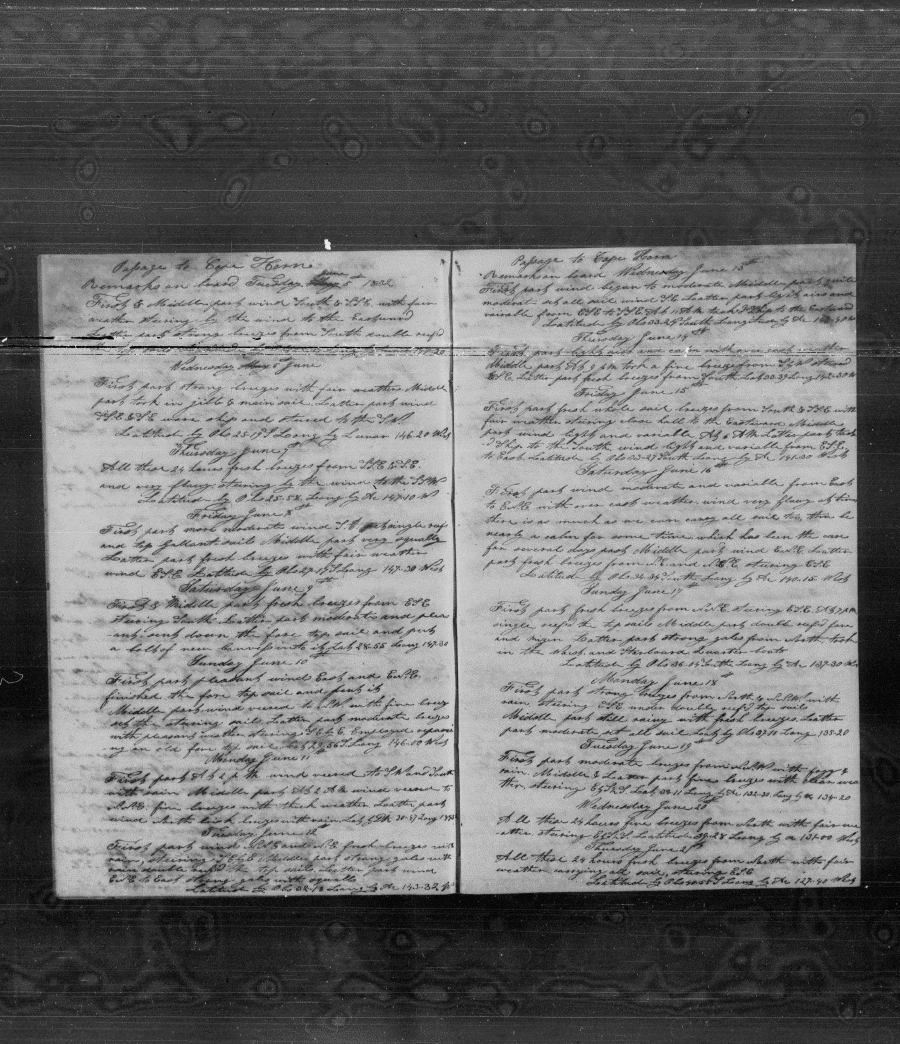 Passage to Cape Horn
Remarks on board Tuesday June 5 1832
First & Middle part wind South & SSE with fair
weather stearing by the wind to the Eastward
Latter part strong breezes from South double reef'd
Wednesday June
First part strong breezes with fair weather Middle
part took in jibb & mainsail Latter part wind
SSE & SE wore ship and stered to the SW
Lattitude by Obs 25-19 S Loong by Lunar 146-20 West
Thursday June 7
All these 24 hours fresh breezes from SSE & SE
and very flawy stearing by the wind to the SWW
Lattitude by Obs 25-58 Loong by Ac 147-10 W
Friday June 8th
First part more moderate wind single reef
and top Gallant sails Middle part very squally
Latter part fresh breezes with fair weather
wind ESE Lattitude by Obs 27-17 S Long 147-30 West
Saturday June 9th
First & Middle part fresh breezes from ESE
stearing South Latter part moderate and pleas
-ant sent down the fore top sail and put
a bolt of new canvas into it Lat 28-55 Loong 147-30
Sunday June 10
First part pleasant wind East and
finished the fore top sail and bent it
Middle part wind veered to NW with fine breez
out the stearing sails Latter part moderate breezes
with pleasant weather stearing Employed repairi
ng an old fore top sail Lat 29-56 S Long 146-00 West
Monday June 11
First part At 2 pm wind veered to SW and South
with rain Middle part At 2 AM wind veered to
fine breezes with thick weather Latter part
wind North brisk breezes with rain Lat by Ac 30-57 Long
Tuesday June 12th
First part wind fresh breezes with
rain stearing Middle part strong gales with
rain double reef'd the top sails Latter part wind
to East strong gales with squalls
Lattitude by Obs Loong by Ac 143-32
Passage to Cape Horn
Remarks on board Wednesday June 13th
First part wind began to moderate Middle part quite
moderate set all sail wind SE Latter part light airs and
variable from ESE to SSE At 11 AM tack'd Ship to the Eastward
Lattitude by Obs 33-29 South Longitude by Ac
Thursday June 14
First part light airs and calm with over cast weather
Middle part At 9 PM took a fine breeze from
ESE Latter part fresh breezes from South Lat 33-39 Long 142-30 W
Friday June 15th
First part fresh whole sail breezes from South & SSE with
fair weather stearing close hall to the Eastward Middle
part wind light and variable At 6 AM Latter part tack'd
Ship to the South wind light and variable from ESE
to East Lattitude by Obs 33-27 South Loong by Ac 141-30 West
Saturday June 16th
First part wind moderate and variable from East
to with over cast weather wind very flawy at times
there is as much as we can carry all sail to, then be
nearly a calm for some time which has been the case
for several days past Middle part wind Latter
part fresh breezes from and stearing ESE
Lattitude by Obs 34-34 South Loong by Ac 140-15 West
Sunday June 17th
First part fresh breezes from stearing ESE At 7 PM
single reef'd the top sails Middle part double reef'd fore
and mizen Latter part strong gales from North took
in the Waist and Starboard Quarter boats
Lattitude by Obs 36-14 South Loong by Ac 137-30 West
Monday June 18th
First part strong breezes from North to with
rain stearing ESE under doubly reef'd top sails
Middle part still rainy with fresh breezes Latter
part moderate set all sail Lat by Obs 37-11 Long 135-20
Tuesday June 19th
First part moderate breezes from with foggy &
rain Middle & Latter part fine breezes with clear wea
ther stearing Lat 38-11 Long by Ac 132-30 Long by 134-20
Wednesday June 20th
All these 24 hours fine breezes from North with fair we
ather stearing Lattitude Loong by Ac 131-00 West
Thursday June 21st
All these 24 hours fresh breezes from North with fair
weather carrying all sail, stearing ESE
Lattitude by Obs Loong by Ac 127-40 West